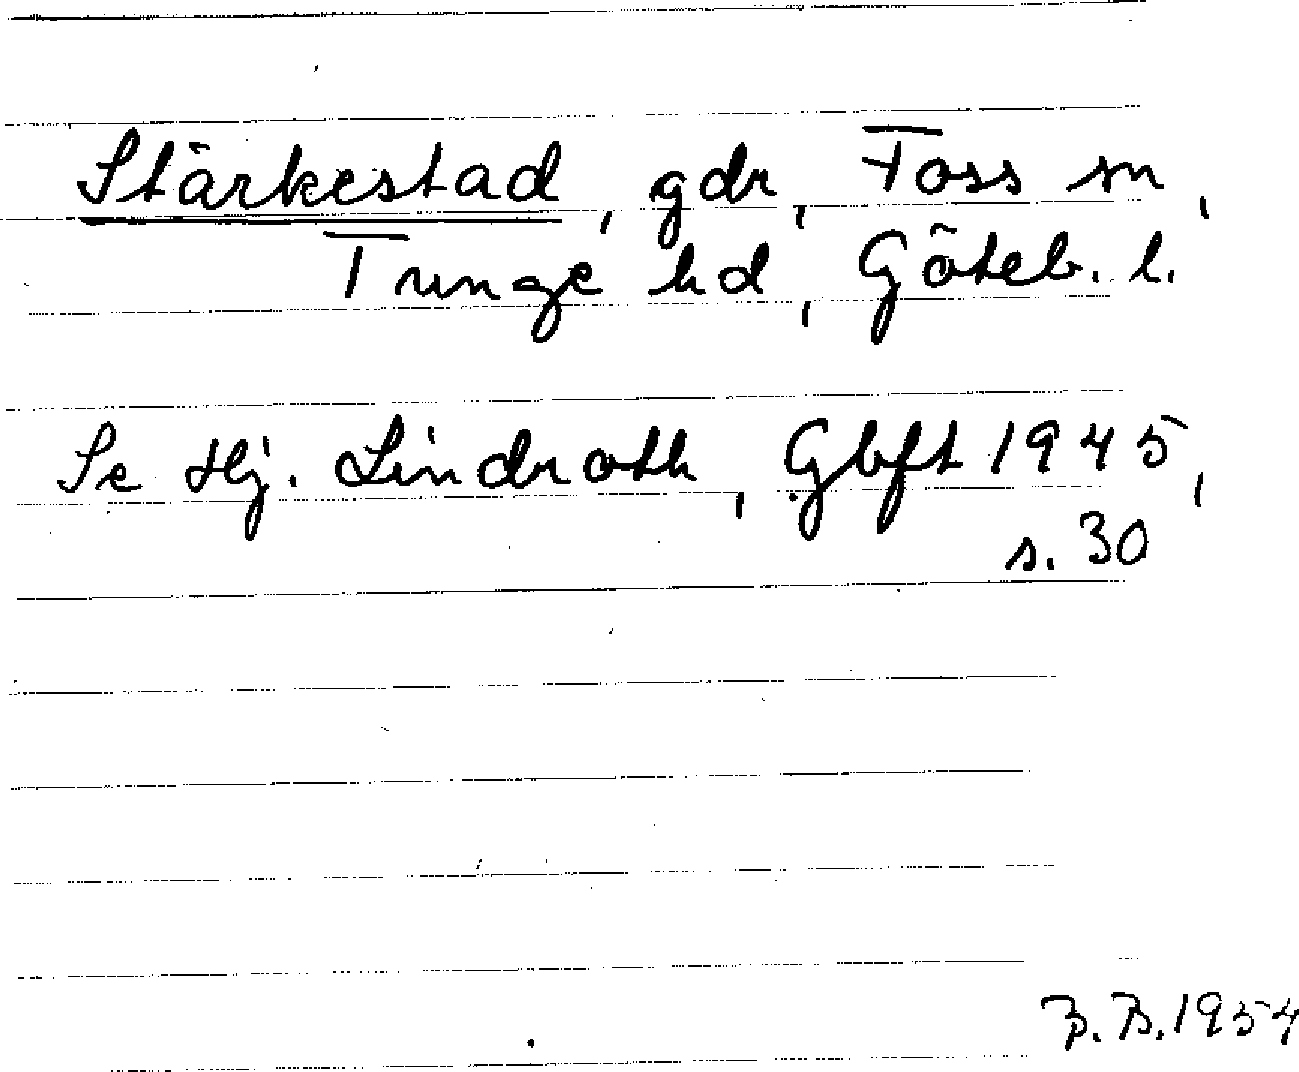 Stärkestad, gdr, Foss sn,
Tunge hd, Göteb. l.
Se Hj. Lindroth, Gbft 1945,
s. 30
B. 1954